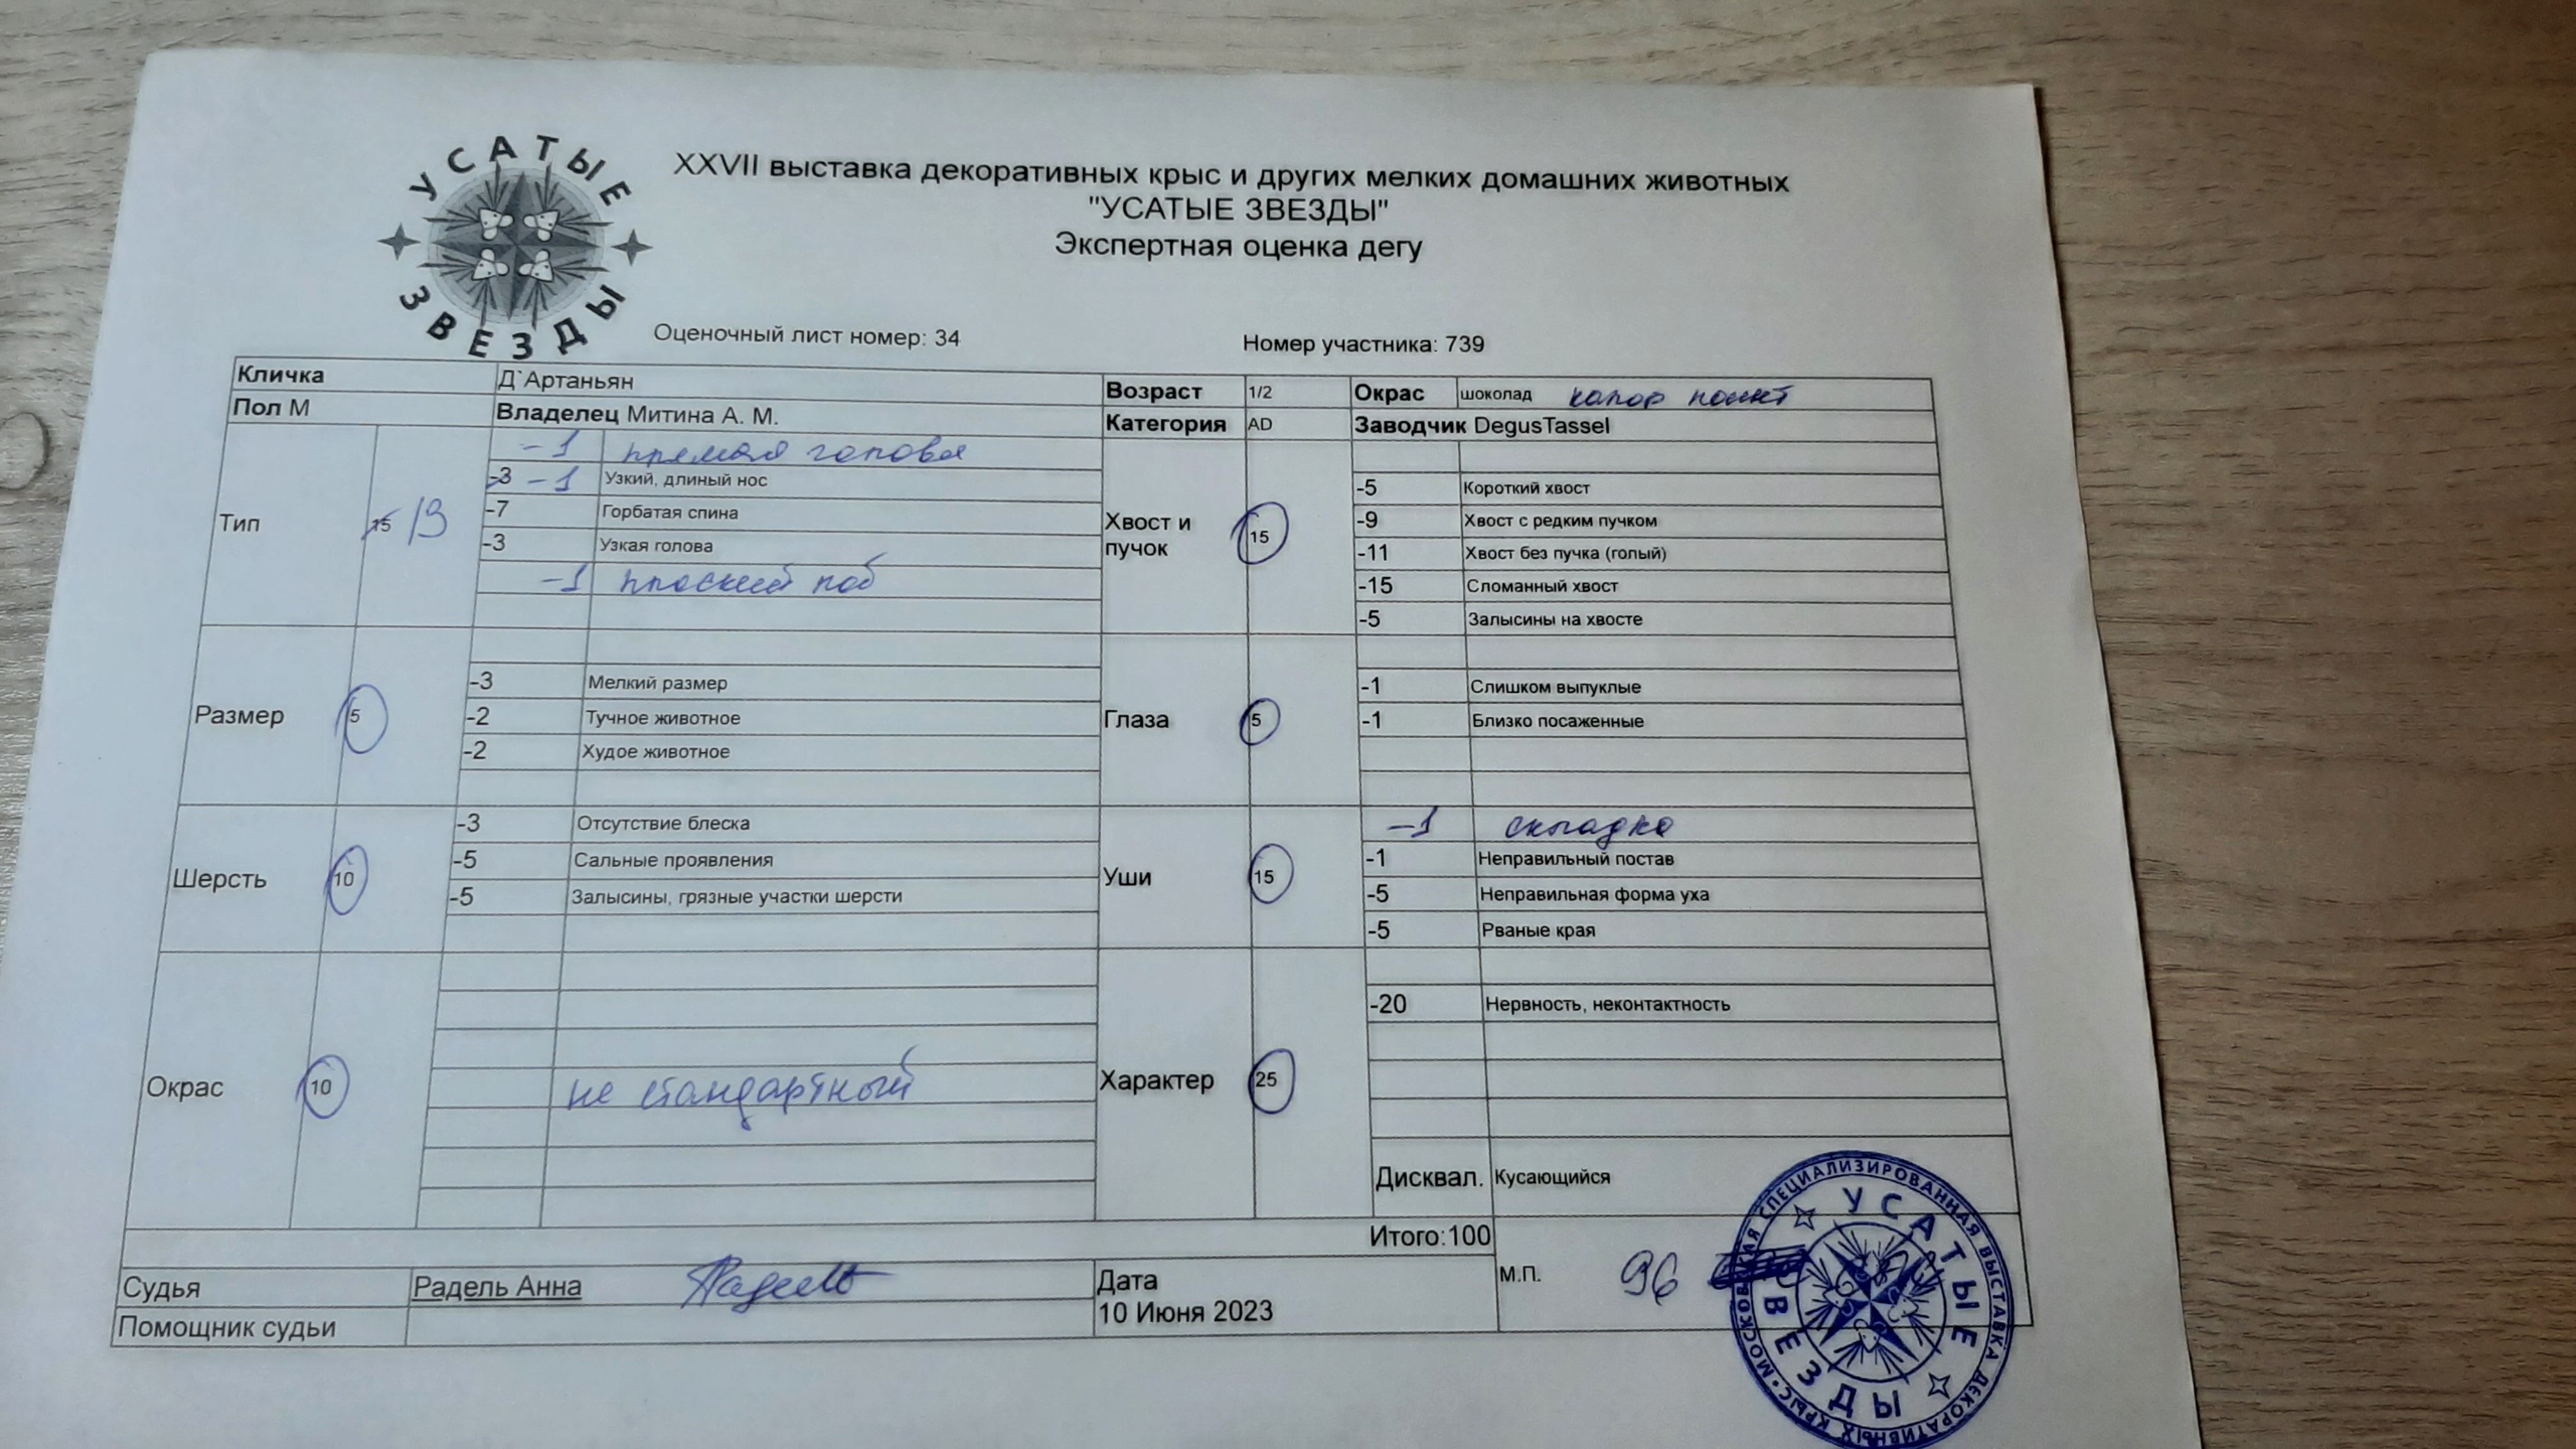 УСАТЫЕ
ЗВЕЗДЫ
XXVII выставка декоративных крыс и других мелких домашних животных
"УСАТЫЕ ЗВЕЗДЫ"
Экспертная оценка дегу
Оценочный лист номер: 34 Номер участника: 739
Кличка Д`Артаньян Возраст 1/2 Окрас шоколад колор поинт
Пол М Владелец Митина А. М. Категория AD Заводчик DegusTassel
Тип 15 13
-1 прямая голова
-3 -1 Узкий, длиный нос
-7 Горбатая спина
-3 Узкая голова
-1 плоский лоб
Хвост и пучок 15
-5 Короткий хвост
-9 Хвост с редким пучком
-11 Хвост без пучка (голый)
-15 Сломанный хвост
-5 Залысины на хвосте
Размер 5
-3 Мелкий размер
-2 Тучное животное
-2 Худое животное
Глаза 5
-1 Слишком выпуклые
-1 Близко посаженные
Шерсть 10
-3 Отсутствие блеска
-5 Сальные проявления
-5 Залысины, грязные участки шерсти
Уши 15
-1 складка
-1 Неправильный постав
-5 Неправильная форма уха
-5 Рваные края
Окрас 10
не стандартный
Характер 25
-20 Нервность, неконтактность
Дисквал. Кусающийся
Итого:100
Судья Радель Анна Радель
Помощник судьи
Дата
10 Июня 2023
М.П. 96
МОСКОВСКАЯ СПЕЦИАЛИЗИРОВАННАЯ ВЫСТАВКА ДЕКОРАТИВНЫХ КРЫС
УСАТЫЕ
ЗВЕЗДЫ